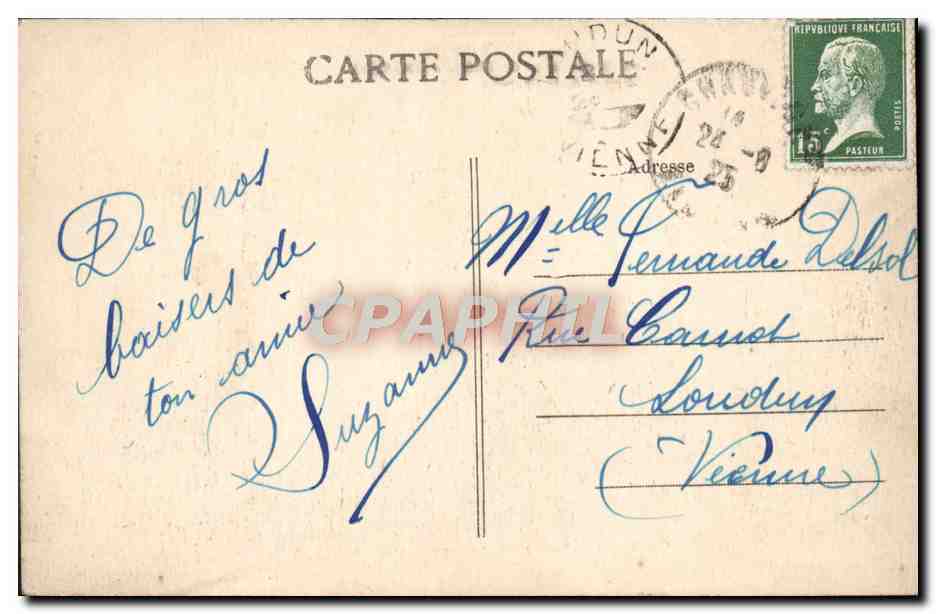 CARTE POSTALE
REPVBLIQUE FRANÇAISE
POSTES
15c
PASTEUR
VIENNE
24 -8
25
Adresse
De gros
baisers de
ton amie
Suzanne
Melle Fernande Delsol
Rue Carnot
Loudun
(Vienne)
CPAPHIL